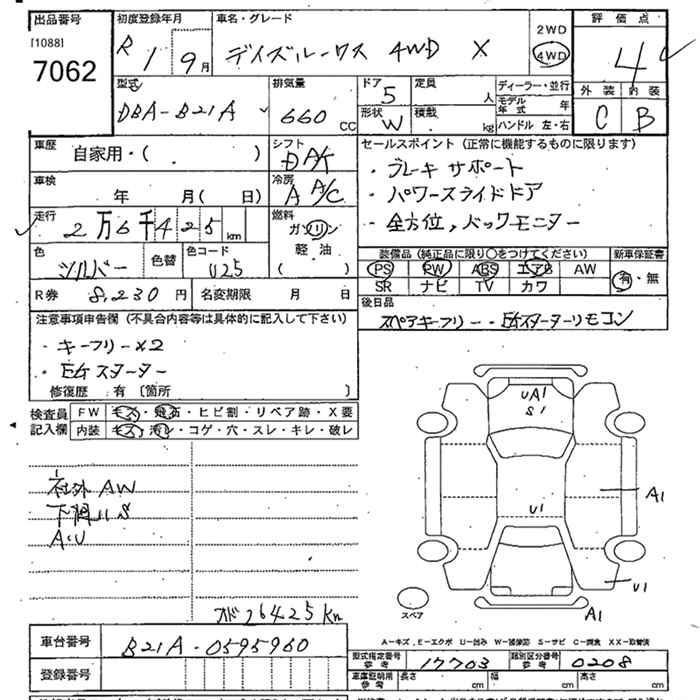 出品番号 初度登録年月 車名・グレード 評価点
[1088] 7062
R1 9月 デイズルークス 4WD X 2WD 4WD 4
型式 排気量 ドア 定員 ディーラー・並行 外装 内装
DBA-B21A 660 CC 5 人 モデル年式 年 C B
形状 W 積載 kg ハンドル 左・右
車歴 シフト セールスポイント(正常に機能するものに限ります)
自家用・( ) DAT ・ブレーキサポート
車検 冷房 ・パワースライドドア
年 月( 日) A A/C ・全方位,バックモニター
走行 燃料
2万6千425km ガソリン
色 色替 色コード 軽油 装備品(純正品に限り○をつけてください) 新車保証書
シルバー U25 ( ) PS PW ABS エアB AW 有・無
SR ナビ TV カワ
R券 8,230円 名変期限 月 日 後日品
注意事項申告欄(不具合内容等は具体的に記入して下さい) スペアキーフリー・EGスターターリモコン
・キーフリー×2
・EGスターター
修復歴 有〔箇所 〕
検査員 FW キズ・飛石・ヒビ割・リペア跡・X要
記入欄 内装 キズ・汚レ・コゲ・穴・スレ・キレ・破レ
UA1
S1
社外AW
A1
下廻りS
U1
A・U
U1
スペア
A1
オド26425Km
A-キズ,E-エクボ U-凹み W-補修跡 S-サビ C-腐食 XX-取替済
車台番号 B21A-0595960
型式指定番号 参考 17703 類別区分番号 参考 0208
登録番号 車庫証明用 参考 長さ cm 幅 cm 高さ cm